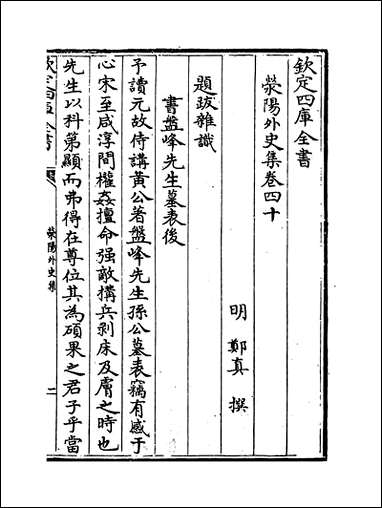 欽定四庫全書
滎陽外史集卷四十
明 鄭真 撰
題跋雜識
書盤峰先生墓表後
予讀元故侍講黃公著盤峰先生孫公墓表竊有感于
心宋至咸淳間權姦擅命强敵構兵剥床及膚之時也
先生以科第顯而弗得在尊位其為碩果之君子乎當
欽定四庫全書
滎陽外史集